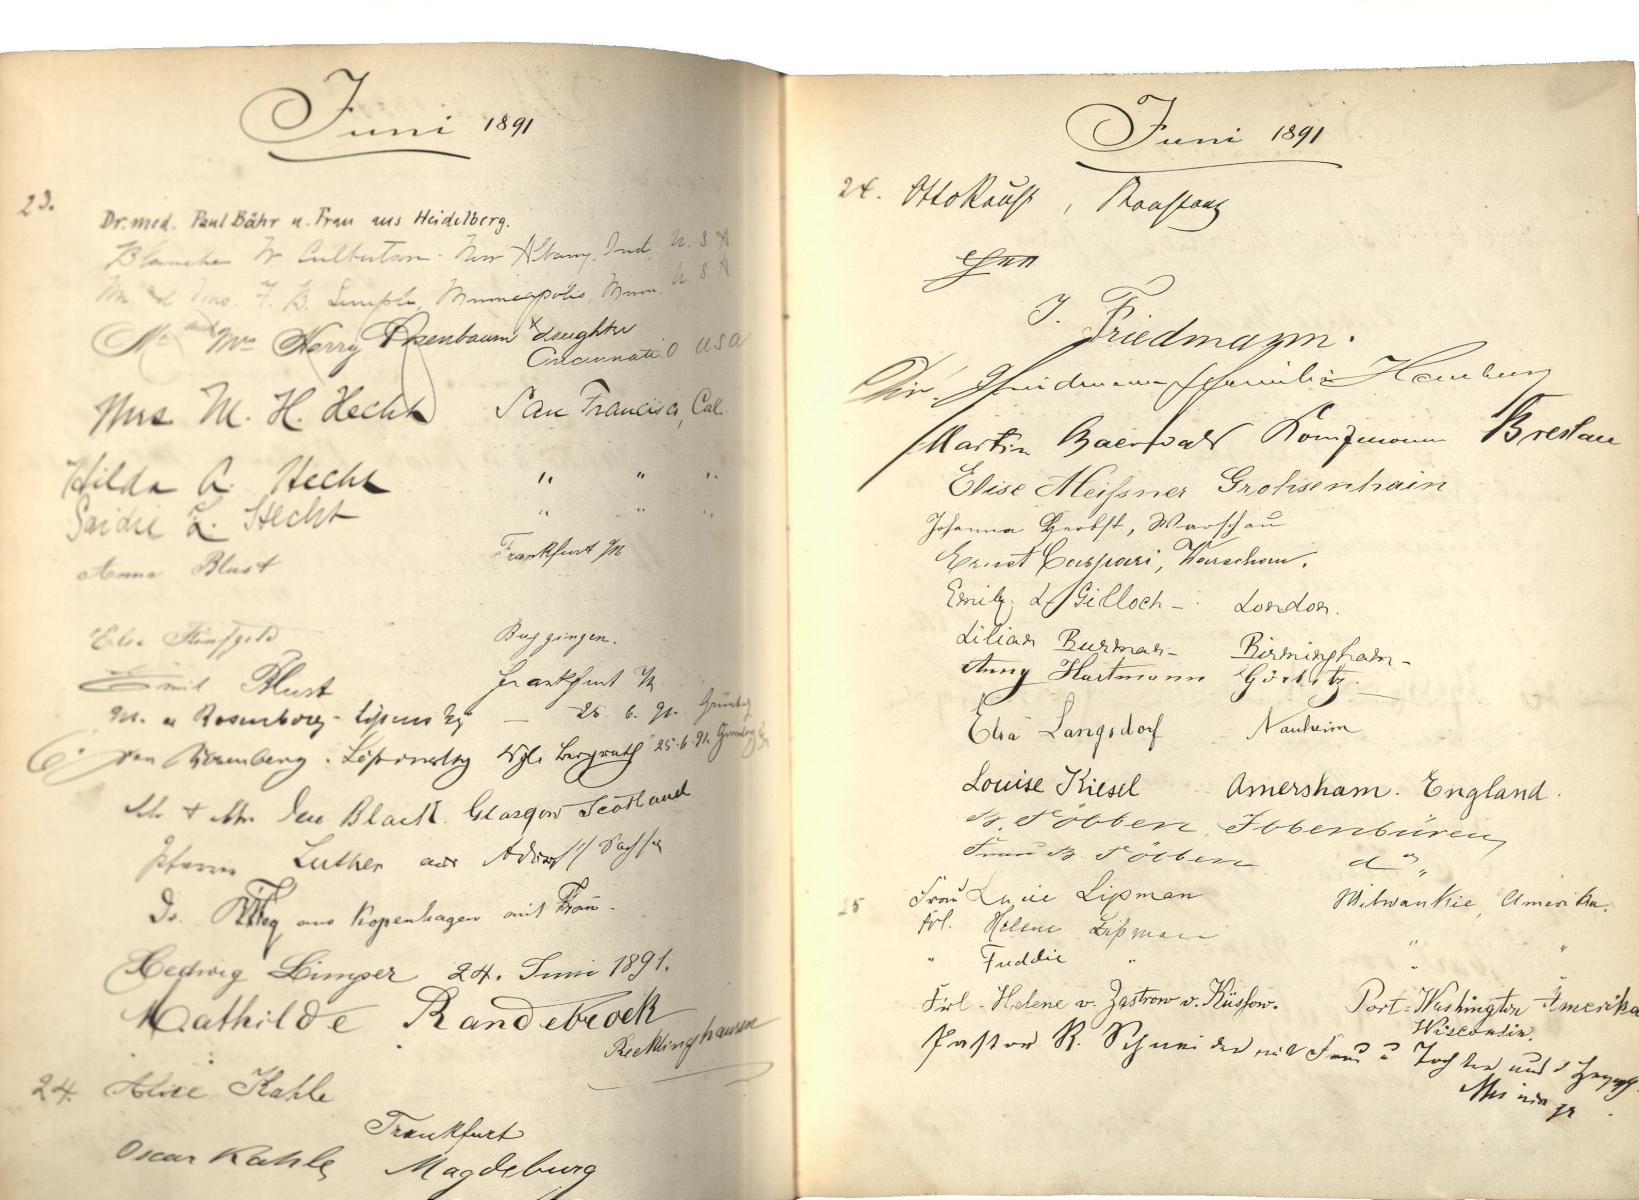 Juni 1891
23.
Dr. med. Paul Bähr u. Frau aus Heidelberg.
Blanche W Culbertson - New Albany, Ind. U. S. A
Mr. & Mrs. F. B. Semple, Minneapolis, Minn. U. S. A
Mr and Mrs Harry Rosenbaum & daughter
Cincinnati O USA
Mrs M. H. Hecht San Francisco, Cal.
Hilda A. Hecht " " "
Saidie L. Hecht " " "
Anna Blust Frankfurt M
Buggingen.
Emil Blust Frankfurt M
25. 6. 91.
von Rosenberg - 25.6.91.
Black Glasgow Scotland
Luther aus
Dr. aus Kopenhagen mit Frau.
Hedwig Limper 24. Juni 1891.
Mathilde Randebrock
Recklinghausen
24. Alice Kahle
Frankfurt
Oscar Kahle Magdeburg
Juni 1891
24. Otto Rauh,
J.
Friedmann.
Friedmann Familie Hamburg
Martin Baerwald Breslau
Elise Meißner Großenhain
Johanna Herbst, Warschau
Ernst Caspari, Warschau.
Emily L. Gilloch - London.
Lilian Burman - Birmingham -
Anny Hartmann Görlitz.
Elsa Langsdorf Nauheim
Louise Kiesel Amersham. England.
B. Többen, Ibbenbüren,
Frau B. Többen do "
25 Frau Lucie Lipman Milwaukie, Amerika.
Frl. Helene Lipman " "
" Freddie " " "
Frl. Helene v. Zastrow v. Küssow. Port-Washington Amerika
Wisconsin.
Pastor R. Schneider mit Frau u Tochter und